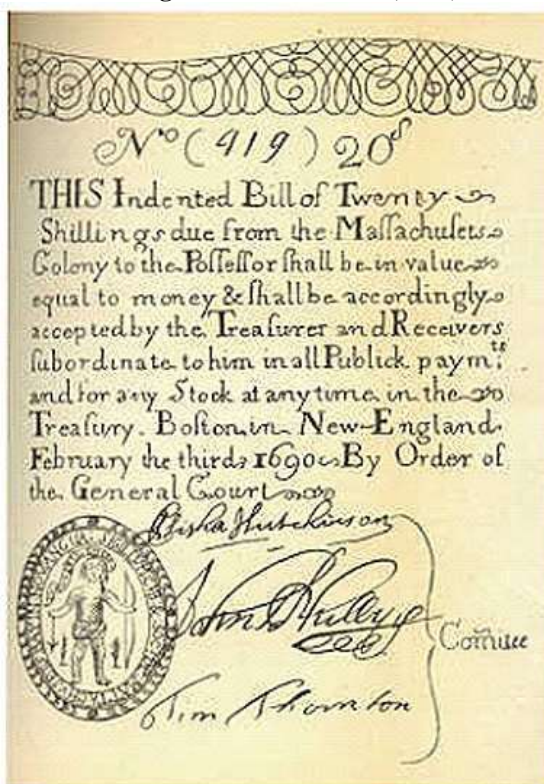 Nº (919) 20ˢ
THIS Indented Bill of Twenty
Shillings due from the Maſſachuſets
Colony to the Poſſeſſor ſhall be in value
equal to money & ſhall be accordingly
accepted by the Treaſurer and Receivers
ſubordinate to him in all Publick paymᵗˢ
and for any Stock at any time in the
Treaſury. Boſton in New-England
February the third 1690 By Order of
the General Court
Elisha Hutchinson
John
Comᵗᵗee
Tim Thornton